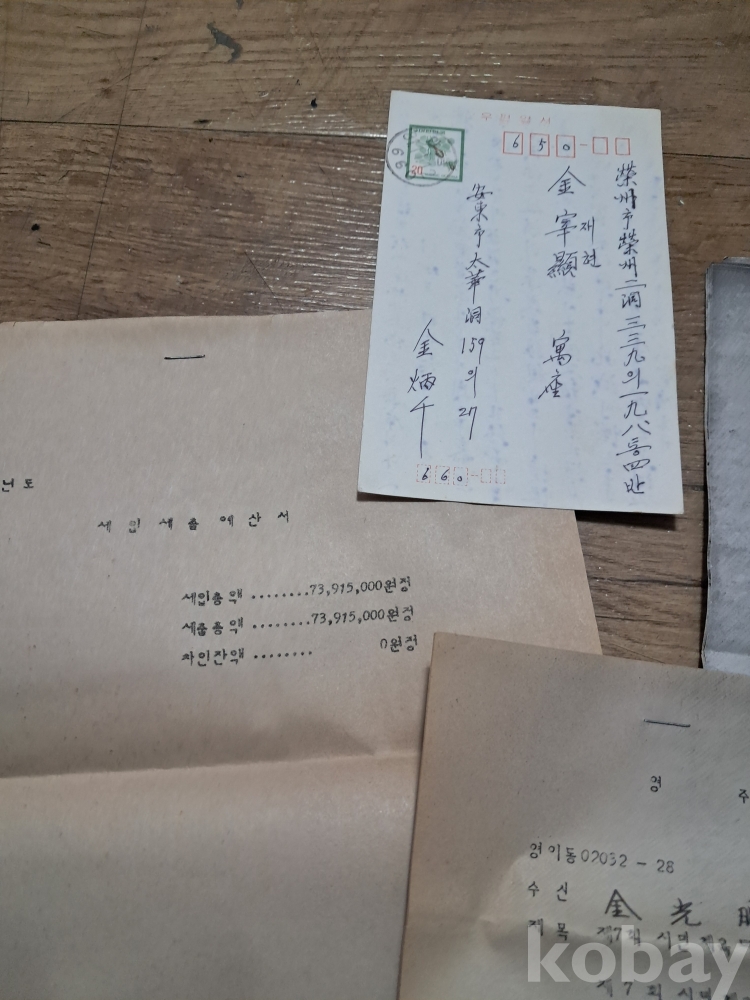 우편엽서
650-
榮州市榮州二洞三三九의一九八통四반
金宰顯
재현
寓座
安東市太華洞159의27
金炳千
660-
20
년도
세입세출예산서
세입총액........73,915,000원정
세출총액........73,915,000원정
차인잔액........ 0원정
영 주
영이동02032-28
수신 金光
제목 제7회 시민
제7회 시민
kobay